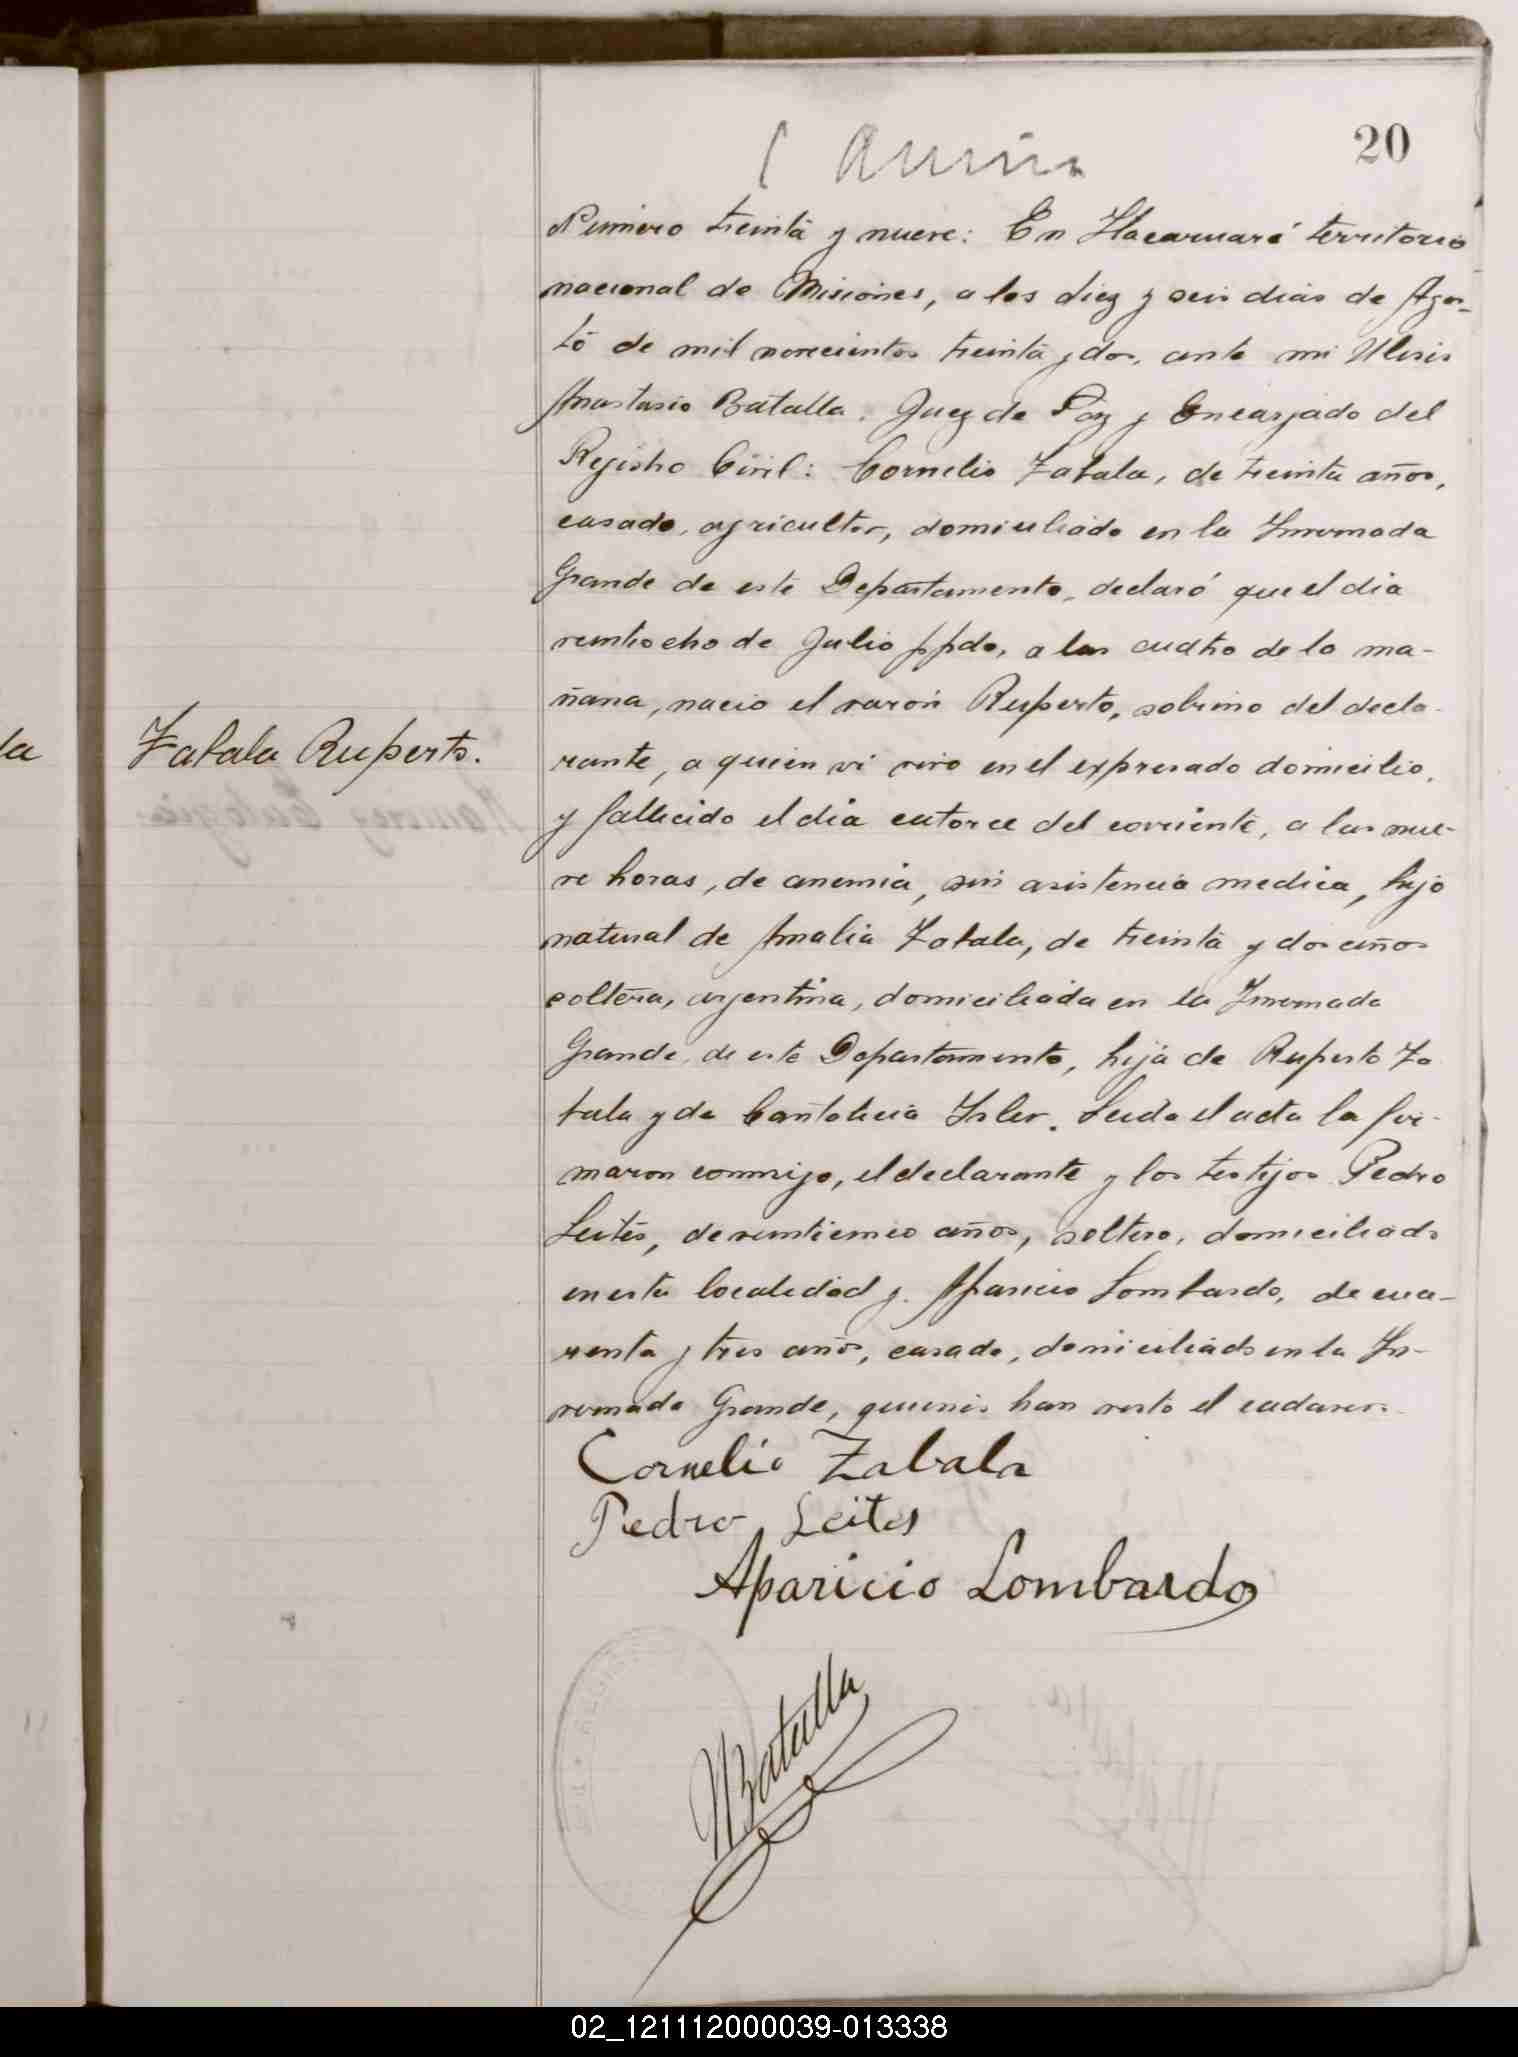 20
Número treinta y nueve: En Itacaruaré territorio
nacional de Misiones, a los diez y seis dias de Agos-
to de mil novecientos treinta y dos, ante mi Ulises
Anastasio Batalla, Juez de Paz y Encargado del
Registro Civil: Cornelio Zabala, de treinta años,
casado, agricultor, domiciliado en la Invernada
Grande de este Departamento, declaró que el dia
veintiocho de Julio ppdo, a las cuatro de la ma-
ñana, nacio el varón Ruperto, sobrino del decla-
rante, a quien vi vivo en el expresado domicilio,
y fallecido el dia catorce del corriente, a las nue-
ve horas, de anemia, sin asistencia medica, hijo
natural de Amalia Zabala, de treinta y dos años
soltera, argentina, domiciliada en la Invernada
Grande, de este Departamento, hija de Ruperto Za
bala y de Cantalicia Isler. Leida el acta la fir-
maron conmigo, el declarante y los testigos Pedro
Leites, de veinticinco años, soltero, domiciliado
en esta localidad y Aparicio Lombardo, de cua-
renta y tres años, casado, domiciliado en la In-
vernada Grande, quienes han visto el cadaver.
Zabala Ruperto.
Cornelio Zabala
Pedro Leites
Aparicio Lombardo
Batalla
02_121112000039-013338